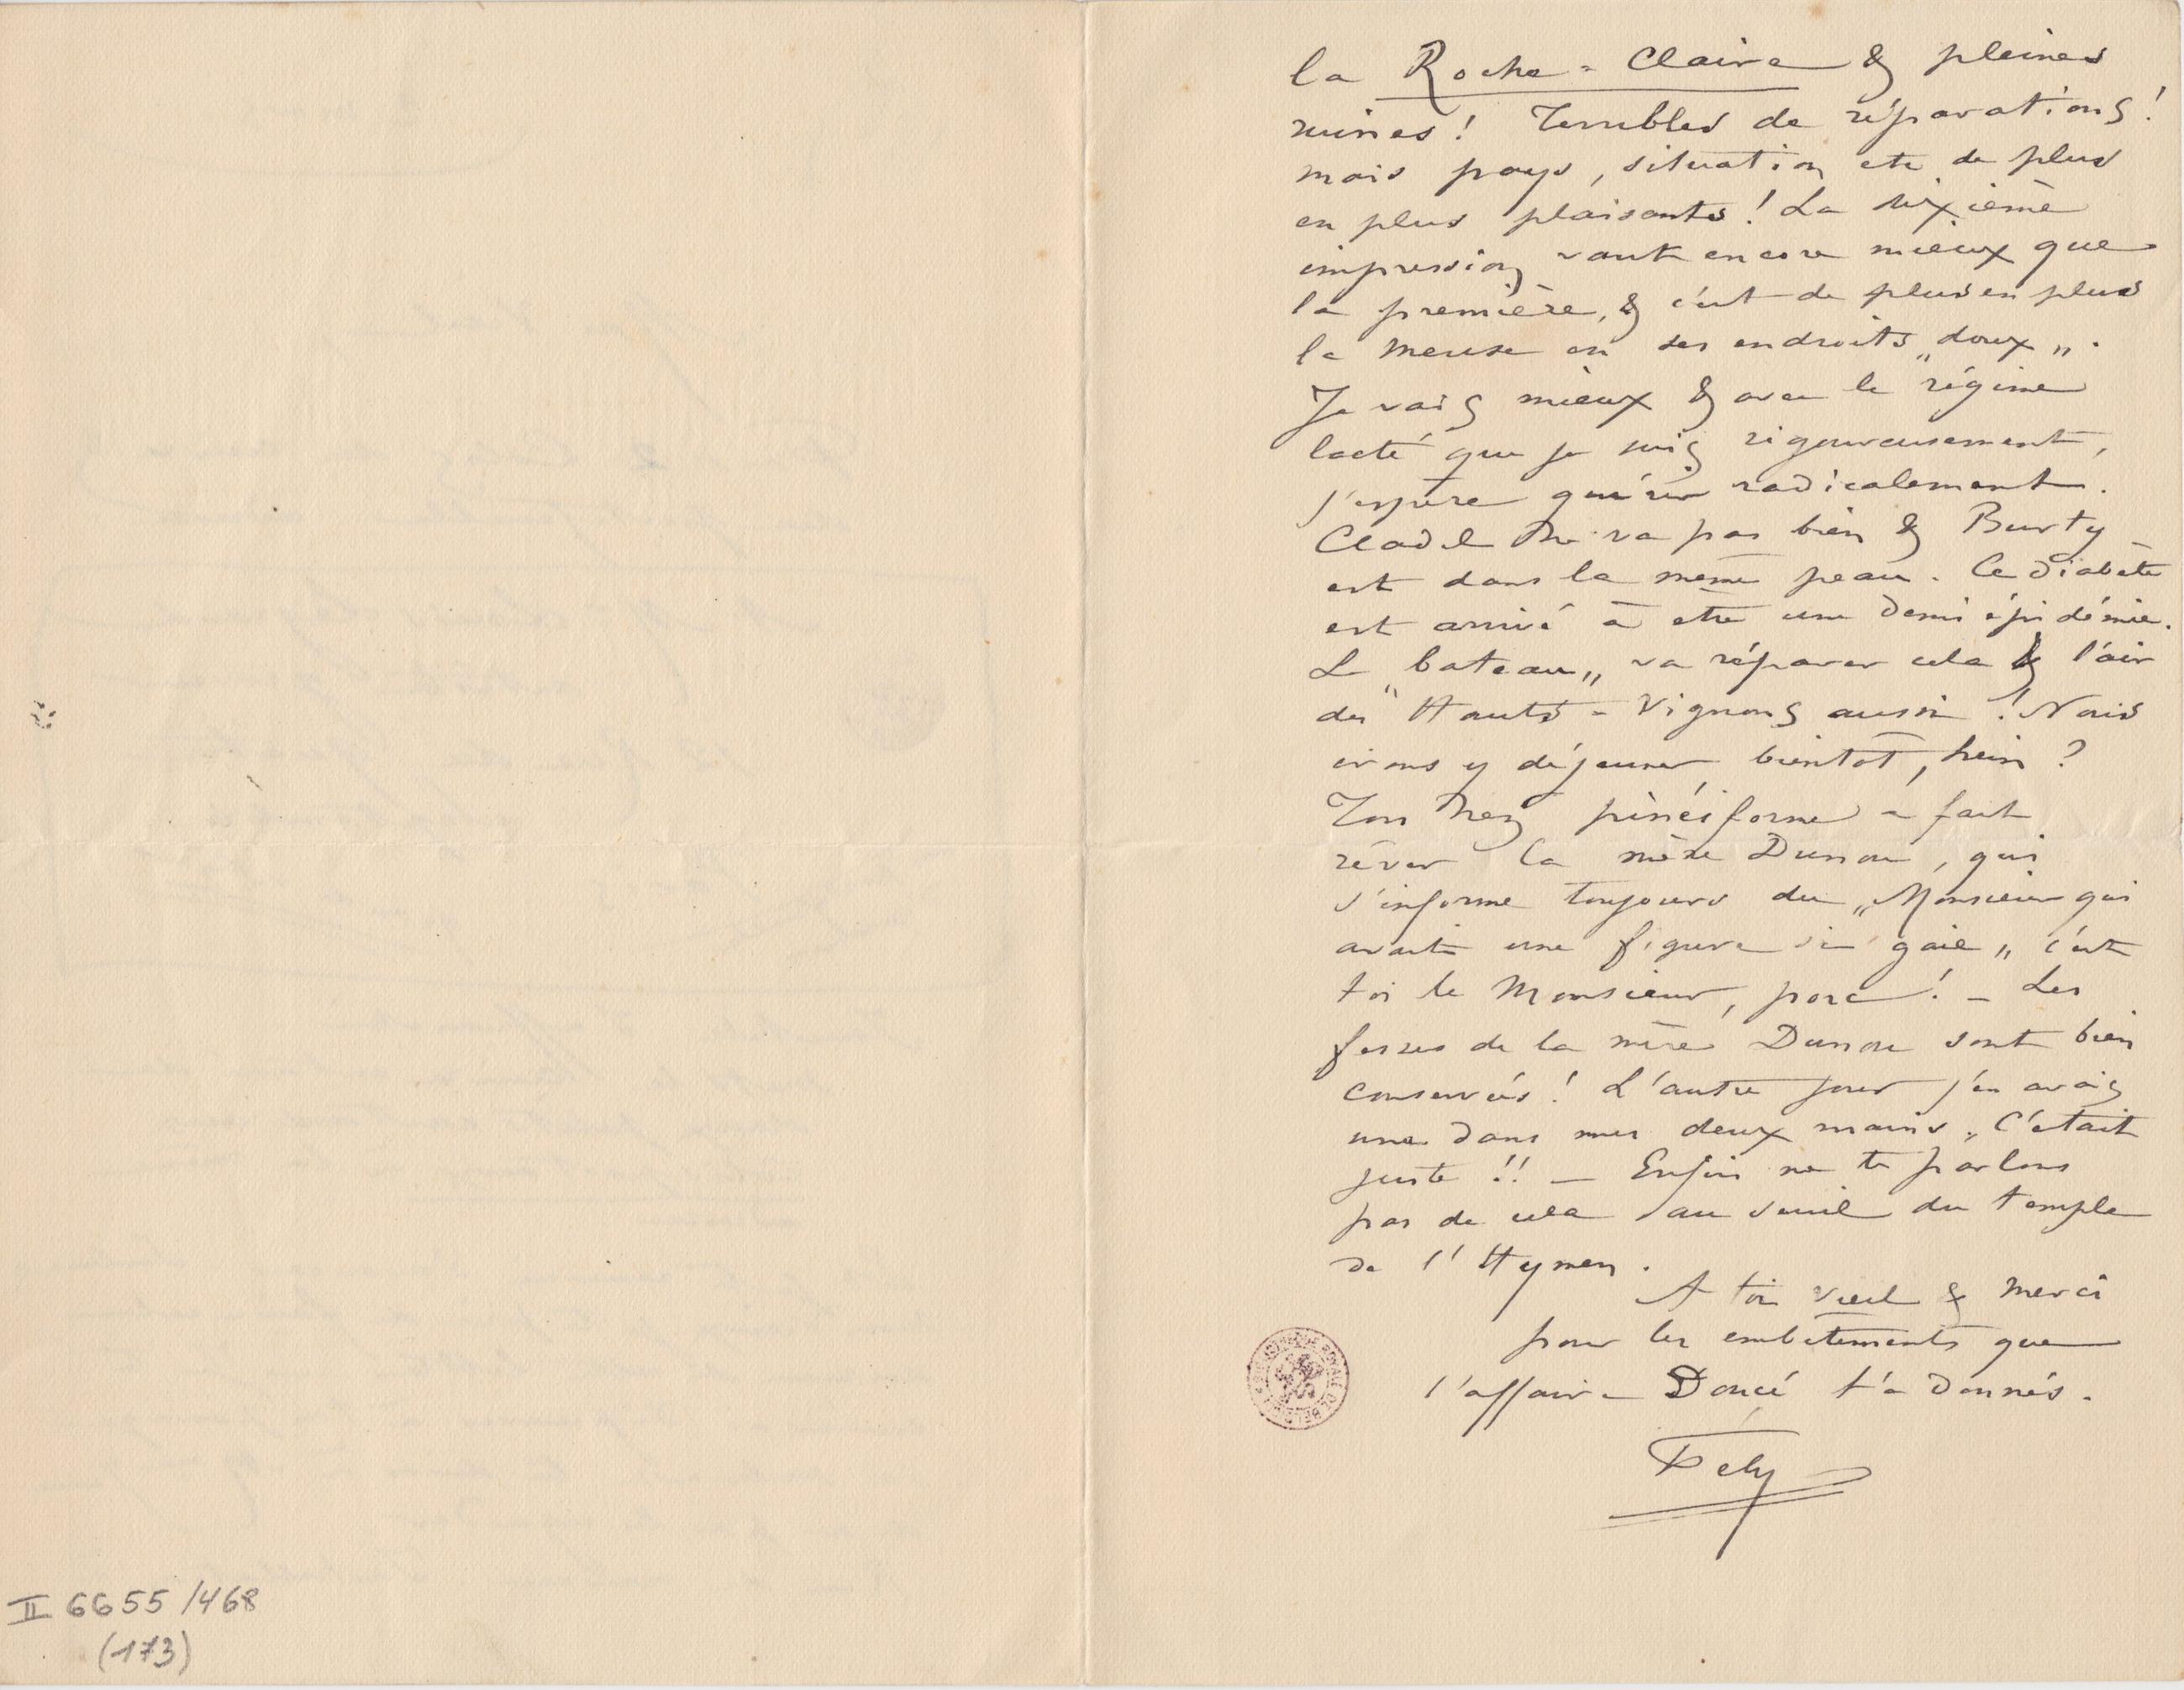 la Roche-Claire & pleines
ruines ! Terribles de réparations !
mais pays, situation etc de plus
en plus plaisants ! La sixième
impression vaut encore mieux que
la première, & c'est de plus en plus
la Meuse en ses endroits „doux„.
Je vais mieux & avec le régime
lacté que je suis rigoureusement,
j'espère guérir radicalement.
Cladel ne va pas bien & Burty
est dans la même peau. Ce diabète
est arrivé à être une demi épidémie.
Le „bateau„ va réparer cela & l'air
des Hauts-Vignons aussi ! Nous
irons y déjeuner bientôt, hein ?
Ton nez pinéiforme a fait
rêver la mère Dunou, qui
s'informe toujours du „Monsieur qui
avait une figure si gaie„ c'est
toi le Monsieur, porc ! – Les
fesses de la mère Dunou sont bien
conservées ! L'autre jour j'en avais
une dans mes deux mains. C'était
juste !! — Enfin ne te parlons
pas de cela au seuil du temple
de l'Hymen.
A toi vieil & merci
pour les embêtements que
l'affaire Doucé t'a donnés.
Fely
II 6655/468
(173)